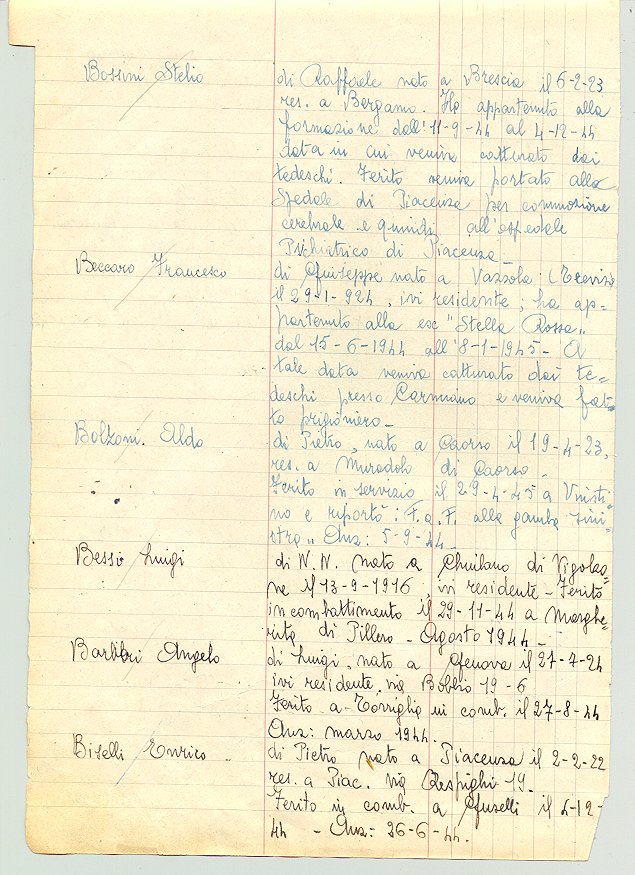 Bossini Stelio di Raffaele nato a Brescia il 6-2-23
res. a Bergamo. Ha appartenuto alla
formazione dall'11-9-44 al 4-12-44
data in cui veniva catturato dai
tedeschi. Ferito veniva portato allo
Spedale di Piacenza per commozione
cerebrale e quindi all'ospedale
Psichiatrico di Piacenza_
Beccaro Francesco di Giuseppe nato a Vazzola (Treviso
il 29-1-924, ivi residente; ha ap=
partenuto alla esc "Stella Rossa"
dal 15-6-1944 all'8-1-1945- A
tale data veniva catturato dai te=
deschi presso Carmiano e veniva fat=
to prigioniero_
Bolzoni Aldo di Pietro, nato a Caorso il 19-4-23,
res. a Muradolo di Caorso_
Ferito in servizio il 29-4-45 a
no e riportò: F.a.F. alla gamba sini
stra" Anz: 5-9-44_
Bessi Luigi di N.N. nato a Chiulano di Vigolzo=
ne il 13-9-1916, ivi residente - Ferito
in combattimento il 29-11-44 a Marghe=
rita di Pillero - Agosto 1944_
Barbbri Angelo di Luigi, nato a Genova il 27-7-24
ivi residente via Bobbio 19-6
Ferito a Torriglia in comb. il 27-8-44
Anz: marzo 1944.
Biselli Enrico di Pietro nato a Piacenza il 2-2-22
res. a Piac. via Respighi 19-
Ferito in comb. a Guselli il 4-12-
44 - Anz: 26-6-44.